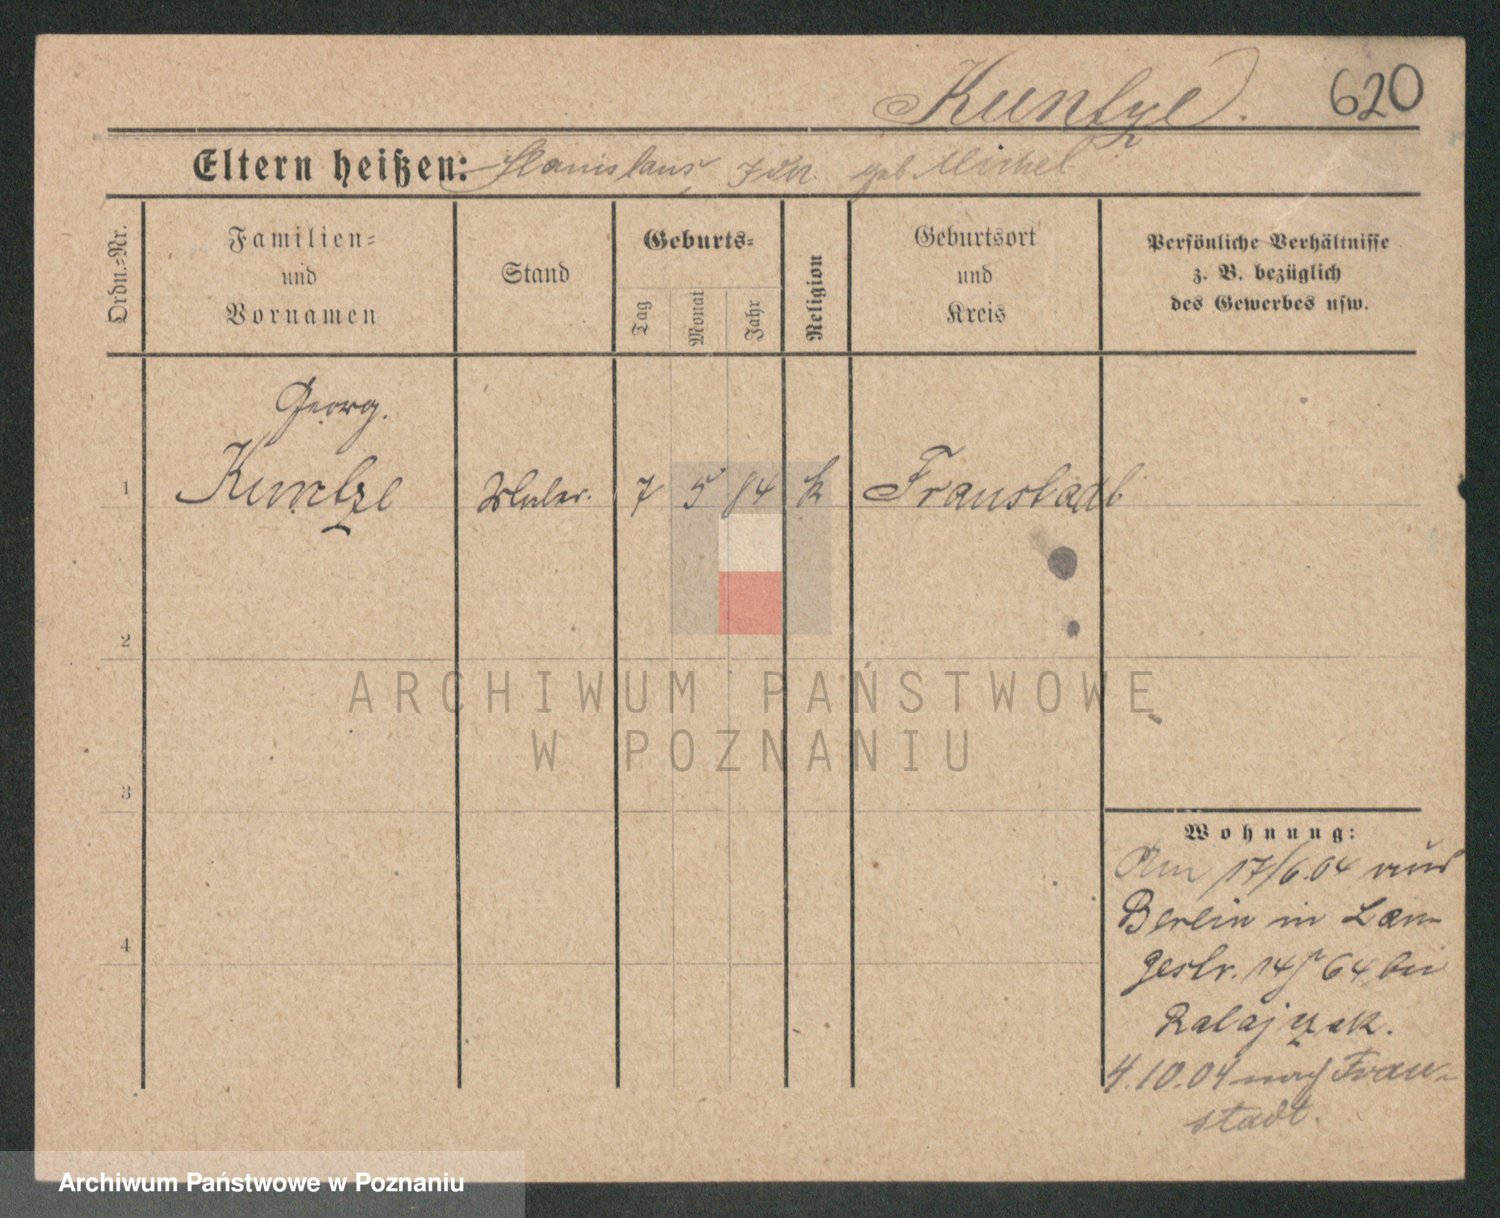 Kuntze. 620
Eltern heißen: Stanislaus, Ida geb Michel
Ordn.=Nr.
Familien=
und
Vornamen
Stand
Geburts=
Tag
Monat
Jahr
Religion
Geburtsort
und
Kreis
Persönliche Verhältnisse
z. B. bezüglich
des Gewerbes usw.
Georg.
1 Kuntze Maler. 7 5 84 k Fraustadt
2
ARCHIWUM PAŃSTWOWE
W POZNANIU
3
Wohnung:
Am 17/6.04 aus
Berlin in Lan-
gestr. 14/ 64, bei
4
4.10.04 nach Frau-
stadt.
Archiwum Państwowe w Poznaniu